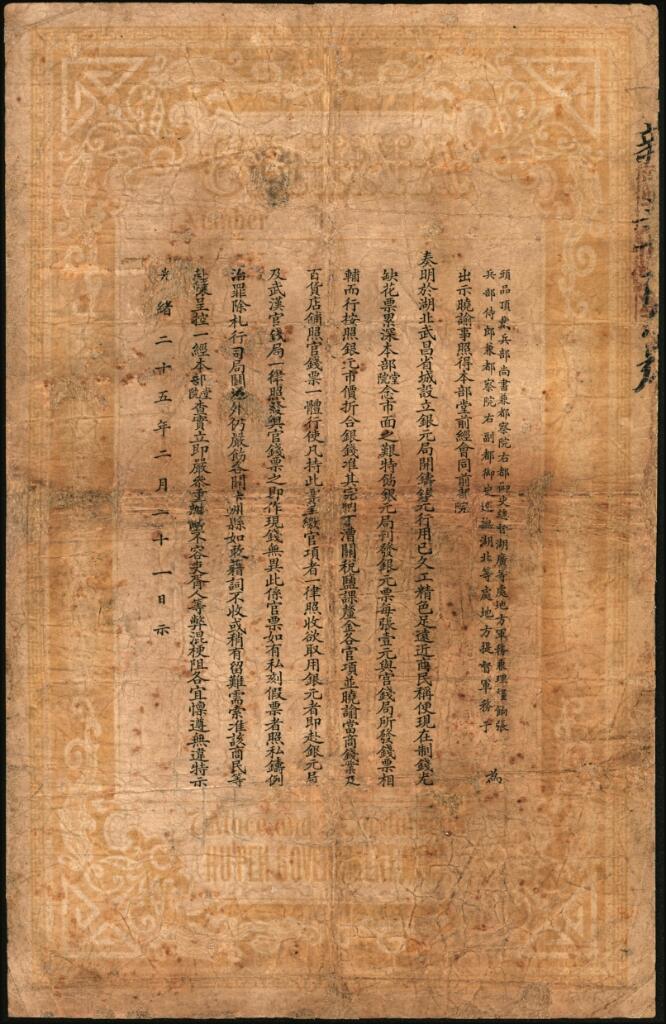 頭品頂戴兵部尚書兼都察院右都御史總督湖廣等處地方軍務兼理糧餉張
兵部侍郎兼都察院右副都御史巡撫湖北等處地方提督軍務于
為
出示曉諭事照得本部堂前經會同前部院
奏明於湖北武昌省城設立銀元局開鑄銀元行用已久工精色足遠近商民稱便現在制錢尤
缺花票累深本部堂院念市面之艱特飭銀元局刊發銀元票每張壹元與官錢局所發錢票相
輔而行按照銀元市價折合銀錢准其完納丁漕關稅鹽課釐金各官項並曉諭當商錢業及
百貨店舖照官錢票一體行使凡持此票呈繳官項者一律照收欲取用銀元者即赴銀元局
及武漢官錢局一律照發與官錢票之即作現錢無異此係官票如有私刻假票者照私鑄例
治罪除札行司局關道外仍嚴飭各關卡州縣如敢藉詞不收或稍有留難需索准該商民等
赴轅呈控一經本部堂院查實立即嚴參重懲不容吏胥人等弊混梗阻各宜懍遵無違特示
光緒二十五年二月二十一日示
Number